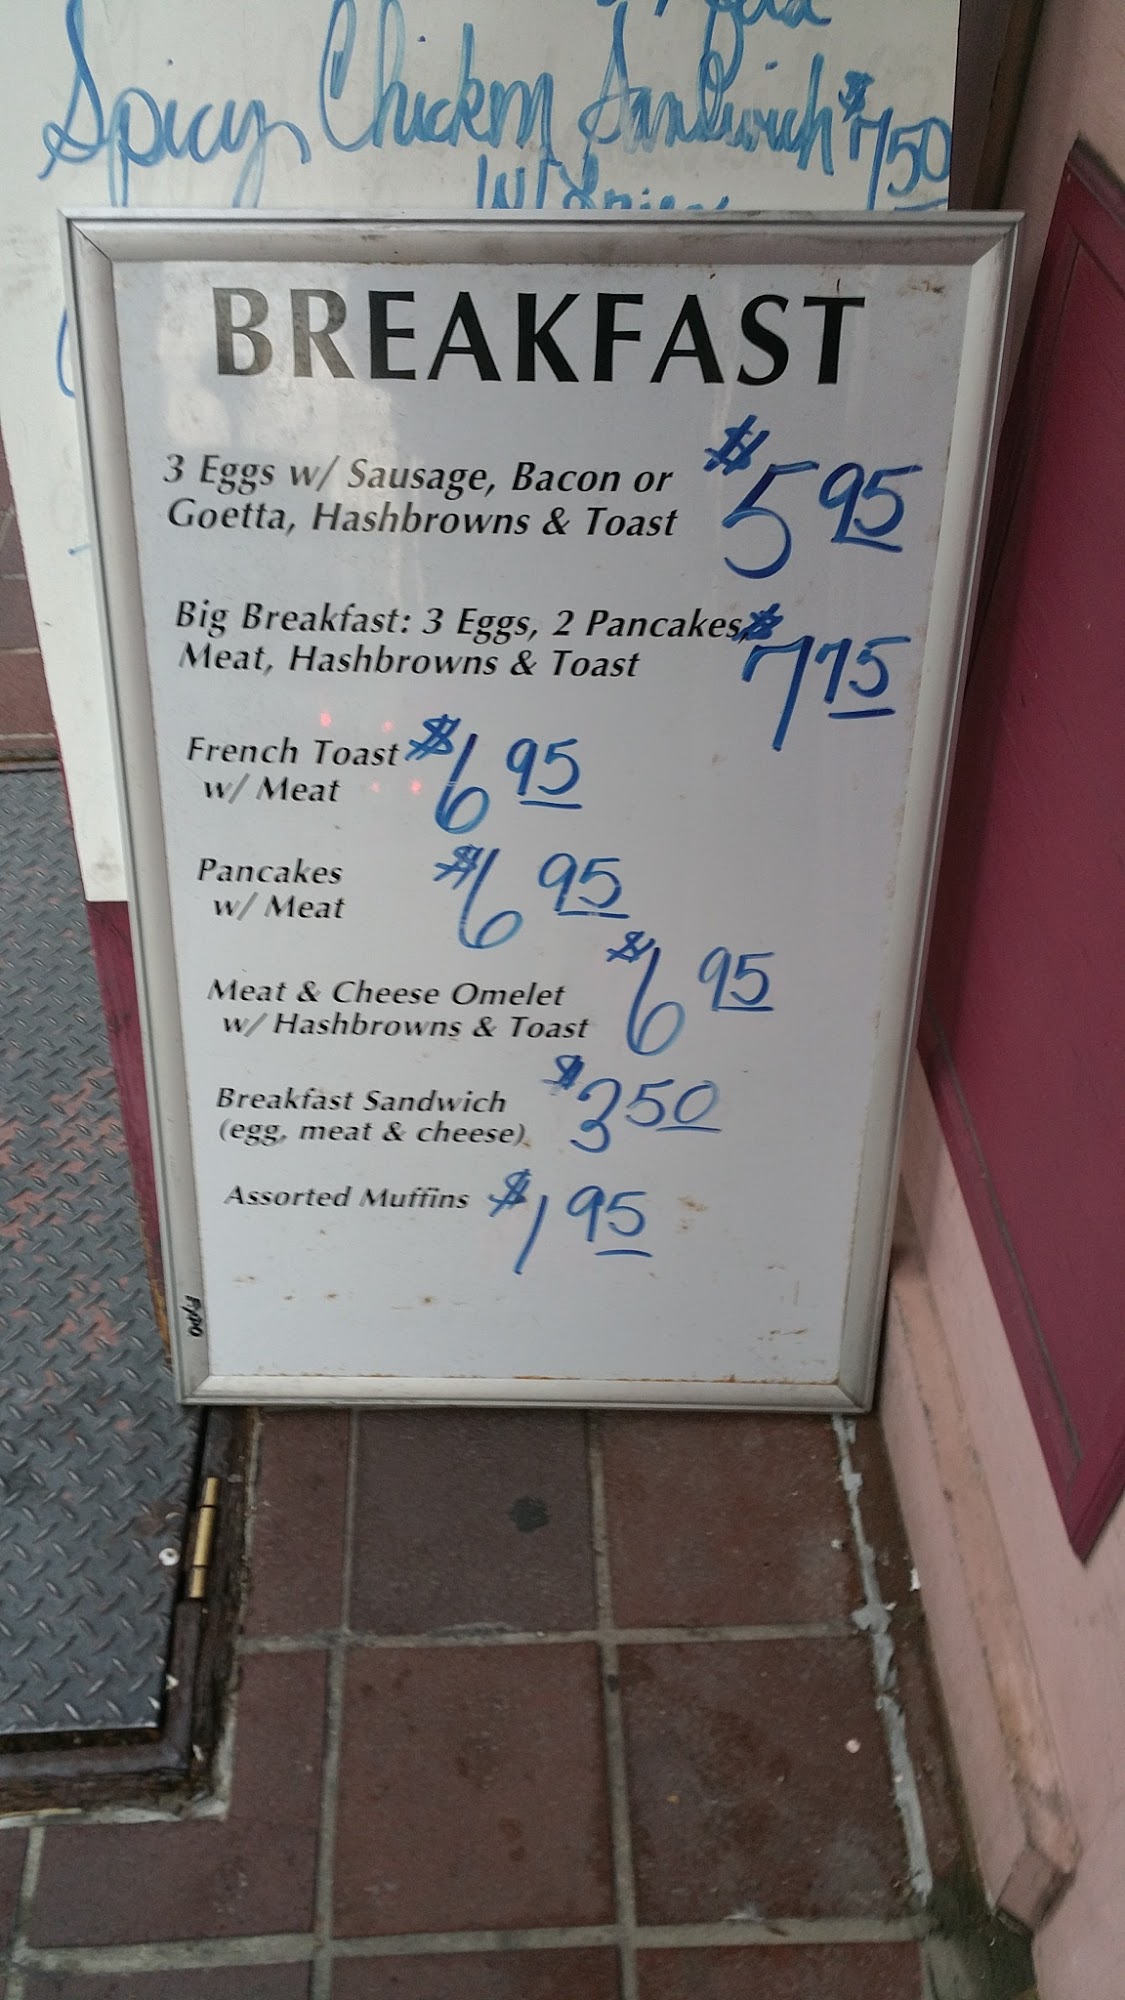 Spicy Chicken Sandwich $7.50
W/
BREAKFAST
3 Eggs w/ Sausage, Bacon or
Goetta, Hashbrowns & Toast $5 95
Big Breakfast: 3 Eggs, 2 Pancakes,
Meat, Hashbrowns & Toast $7 75
French Toast
w/ Meat $6 95
Pancakes
w/ Meat $6 95
Meat & Cheese Omelet
w/ Hashbrowns & Toast $6 95
Breakfast Sandwich
(egg, meat & cheese) $3 50
Assorted Muffins $1 95